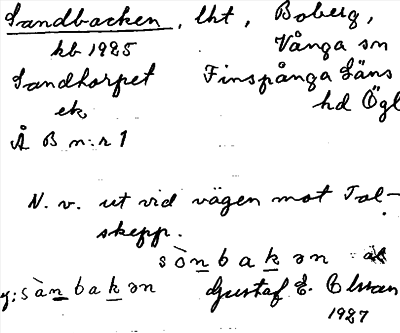 Sandbacken, lht, Boberg,
kb 1925 Vånga sn
Sandtorpet Finspånga Läns
ek. hd Ögl
Å B n:r 1
N. v. ut vid vägen mot Tol-
skepp.
sònbakən
g: sànbakən Gustaf E. Olsson
1927